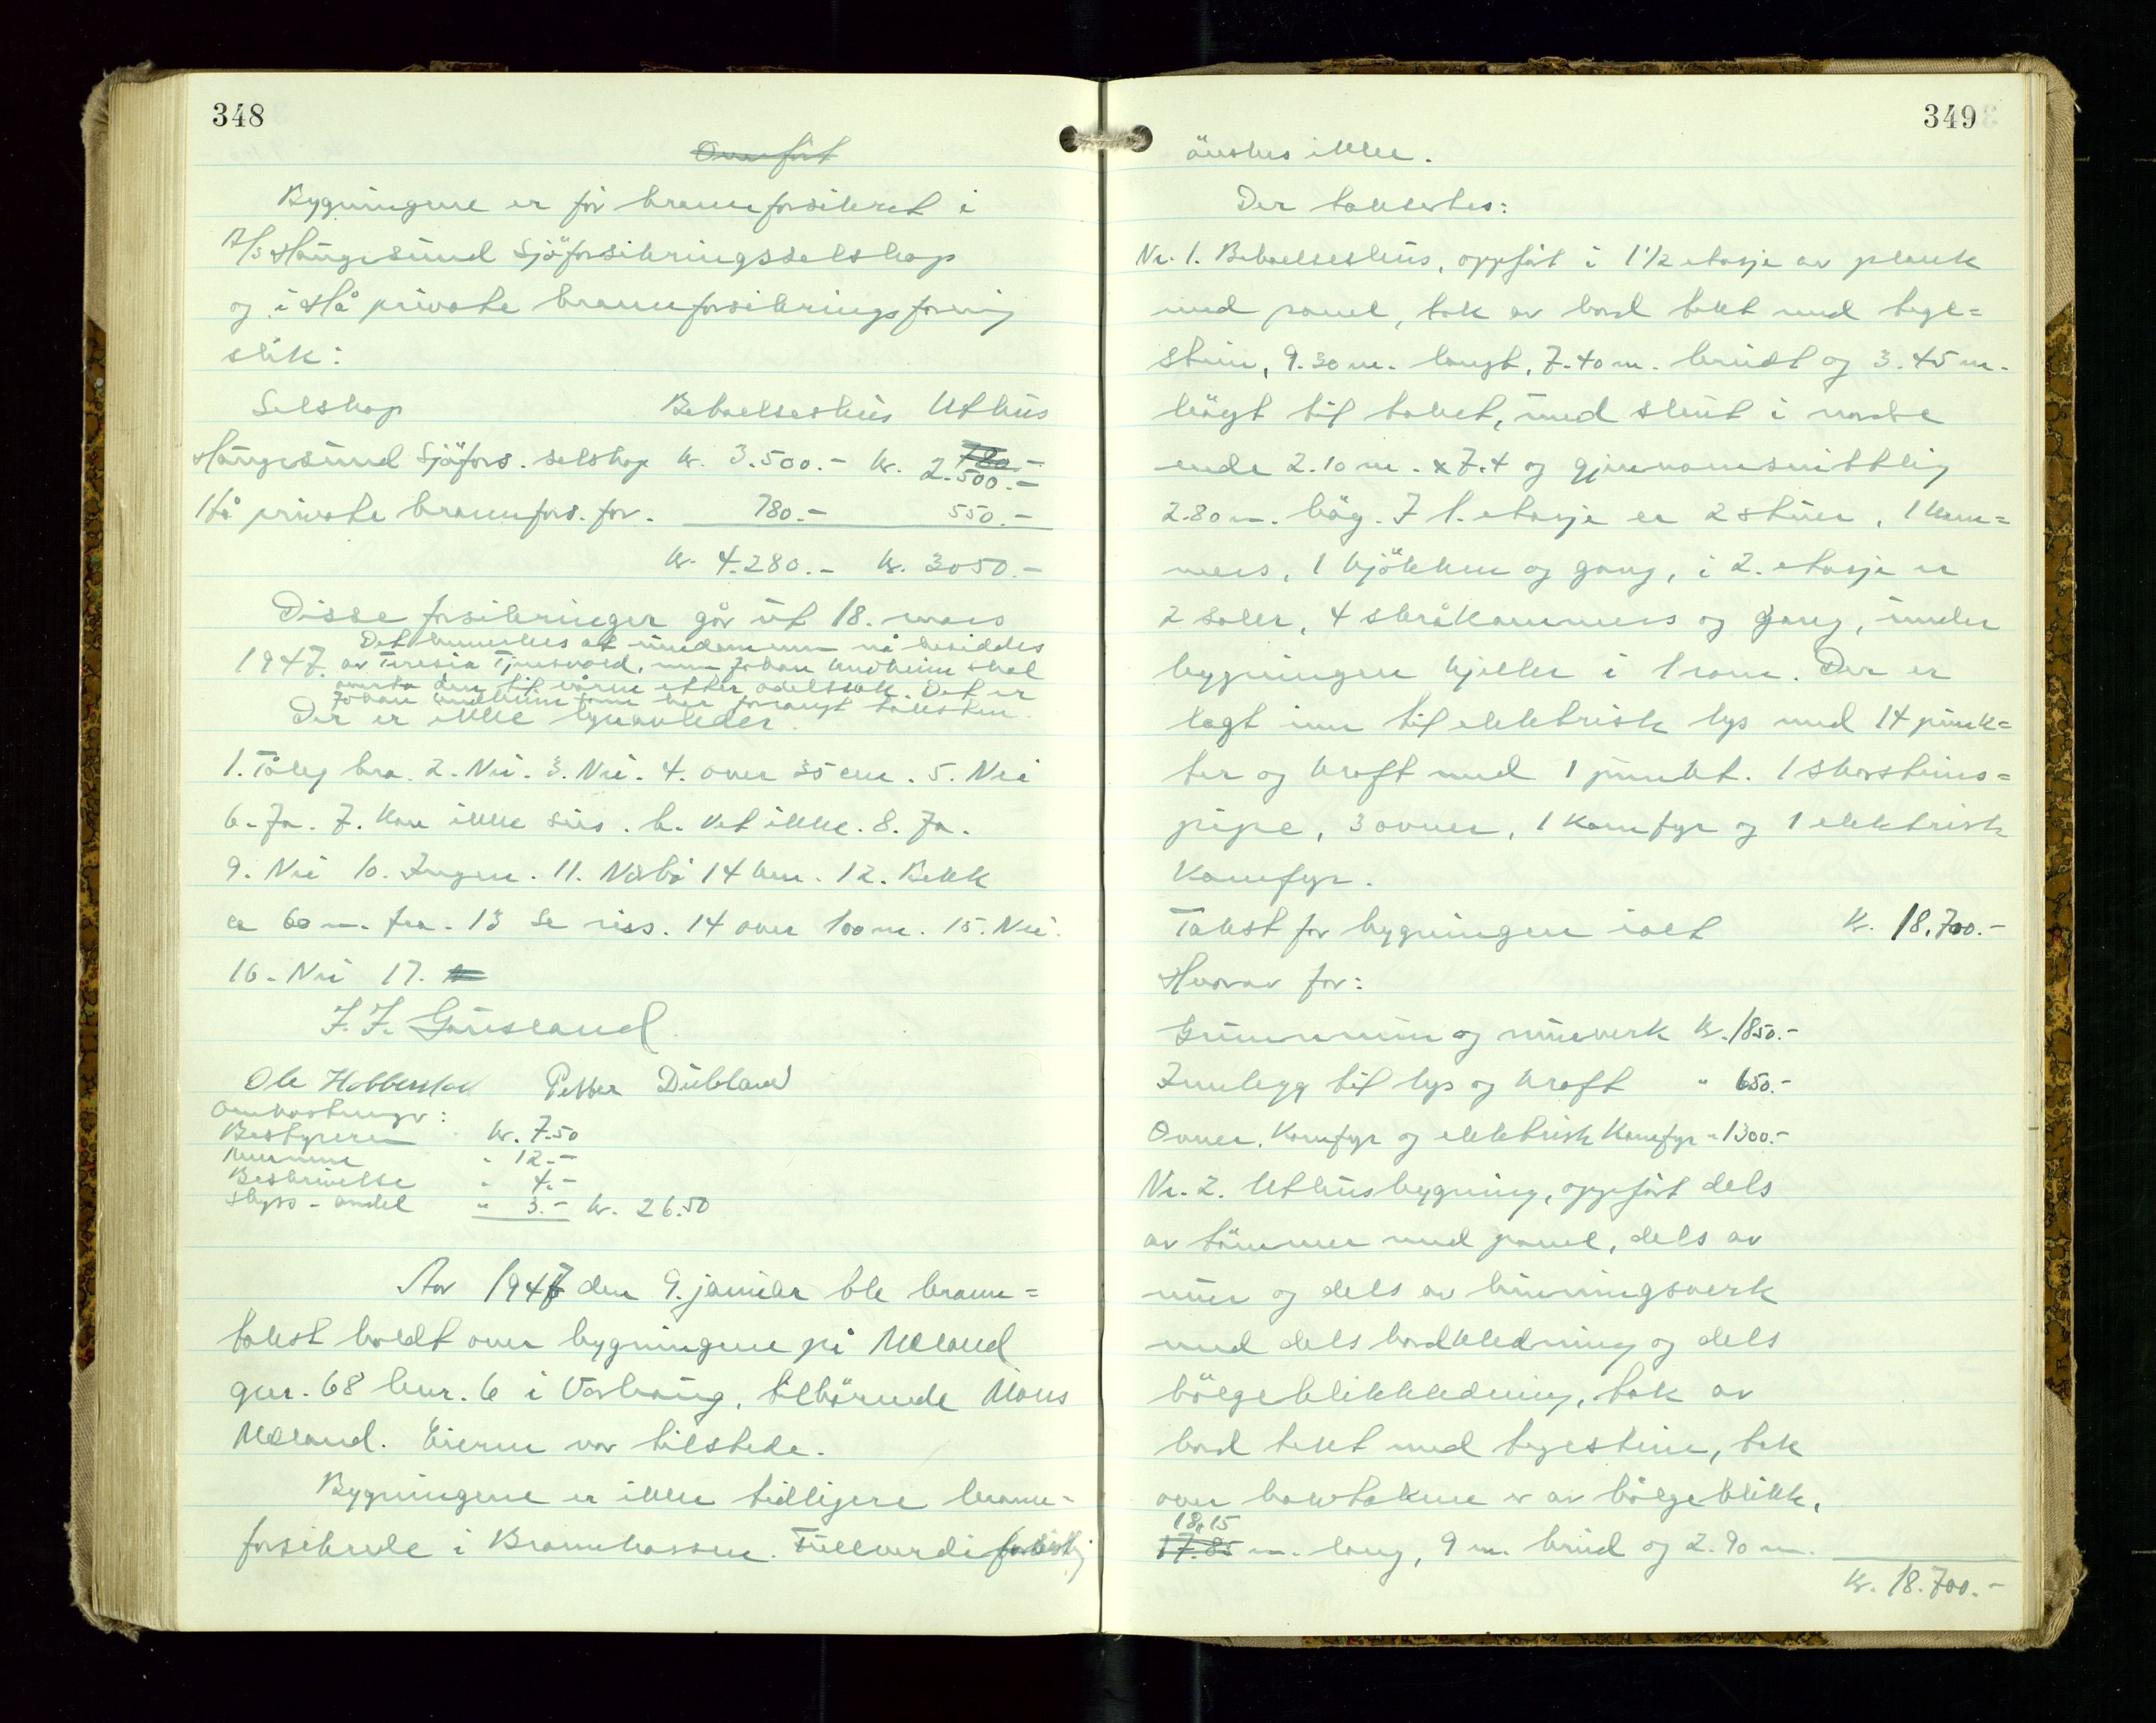 348
Overført
Bygningene er før brannforsikret i
A/S Haugesund Sjöforsikringsselskap
og i Hå private brannforsikringsforening
slik:
Selskap Beboelseshus Uthus
Haugesund Sjöfors. selskap kr. 3.500.- kr. 2.500.-
Hå private brannfors. for. 780.- 550.-
kr. 4.280.- kr. 3050.-
Disse forsikringer går ut 18. mars
1947. Det bemerkes at eiendommen nå besiddes
av Teresia Tjensvold, men Johan Undheim skal
overta den til våren etter odelssak. Det er
Johan Undheim som har forlangt taksten.
Der er ikke lynavleder.
1. Tålig bra. 2. Nei. 3. Nei. 4. over 35 cm. 5. Nei
6. Ja. 7. Kan ikke sies. b. Vet ikke. 8. Ja.
9. Nei 10. Ingen. 11. Nærbø 14 km. 12. Bekk
ca 60 m. fra. 13 Se riss. 14 over 100 m. 15. Nei.
16. Nei 17.
J. J. Gausland.
Ole Hobberstad Petter Dubland
Omkostninger:
Bestyreren kr. 7.50
Mennene " 12.-
Beskrivelse " 4.-
Skyss-andel " 3.- kr. 26.50
År 1947 den 9. januar ble brann=
takst holdt over bygningene på Mæland
gnr. 68 bnr. 6 i Varhaug, tilhørende Mons
Mæland. Eieren var tilstede.
Bygningene er ikke tidligere brann=
forsikrede i Brannkassen. Fullverdiforsikring
349
önskes ikke.
Der takstertes:
Nr. 1. Beboelseshus, oppført i 1 1/2 etasje av plank
med panel, tak av bord tekt med tegl=
stein, 9.30 m. langt, 7.40 m. bredt og 3.45 m.
högt til taket, med skut i nordre
ende 2.10 m. x 7.4 og gjennomsnittlig
2.80 m. høg. I 1. etasje er 2 stuer, 1 kam=
mers, 1 kjökken og gang, i 2. etasje er
2 saler, 4 skråkammers og gang, under
bygningen kjeller i 1 rom. Der er
lagt inn til elektrisk lys med 14 punk=
ter og kraft med 1 punkt. 1 skorsteins=
pipe, 3 ovner, 1 komfyr og 1 elektrisk
komfyr.
Takst for bygningen ialt kr. 18.700.-
Hvorav for:
Grunnmur og murverk kr. 1850.-
Innlegg til lys og kraft " 650.-
Ovner, komfyr og elektrisk komfyr " 1300.-
Nr. 2. Uthusbygning, oppført dels
av tömmer med panel, dels av
mur og dels av binningsverk
med dels bordkledning og dels
bölgeblikkledning, tak av
bord tekt med teglstein, tak
over halvtakene er av bölgeblikk,
18,15
17.85 m. lang, 9 m. breid og 2.90 m.
kr. 18.700.-